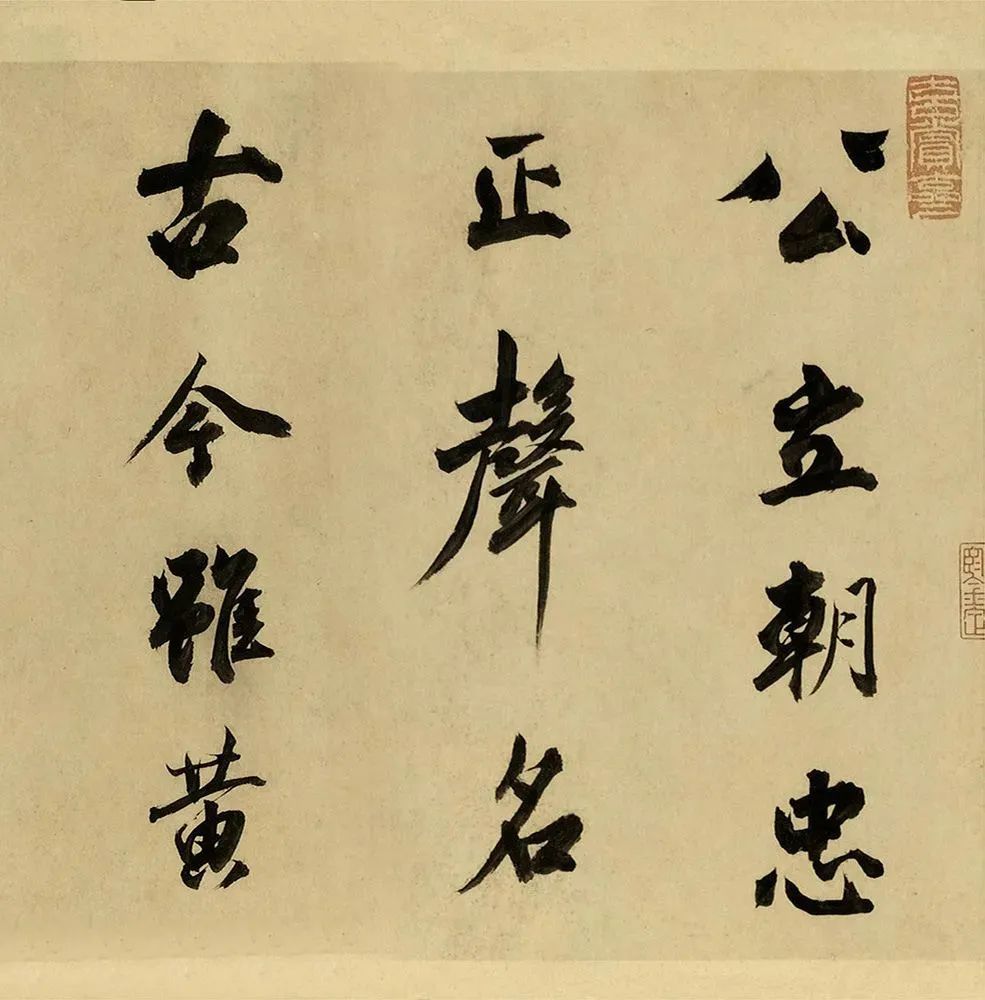 公立朝忠
正聲名
古今雖黄